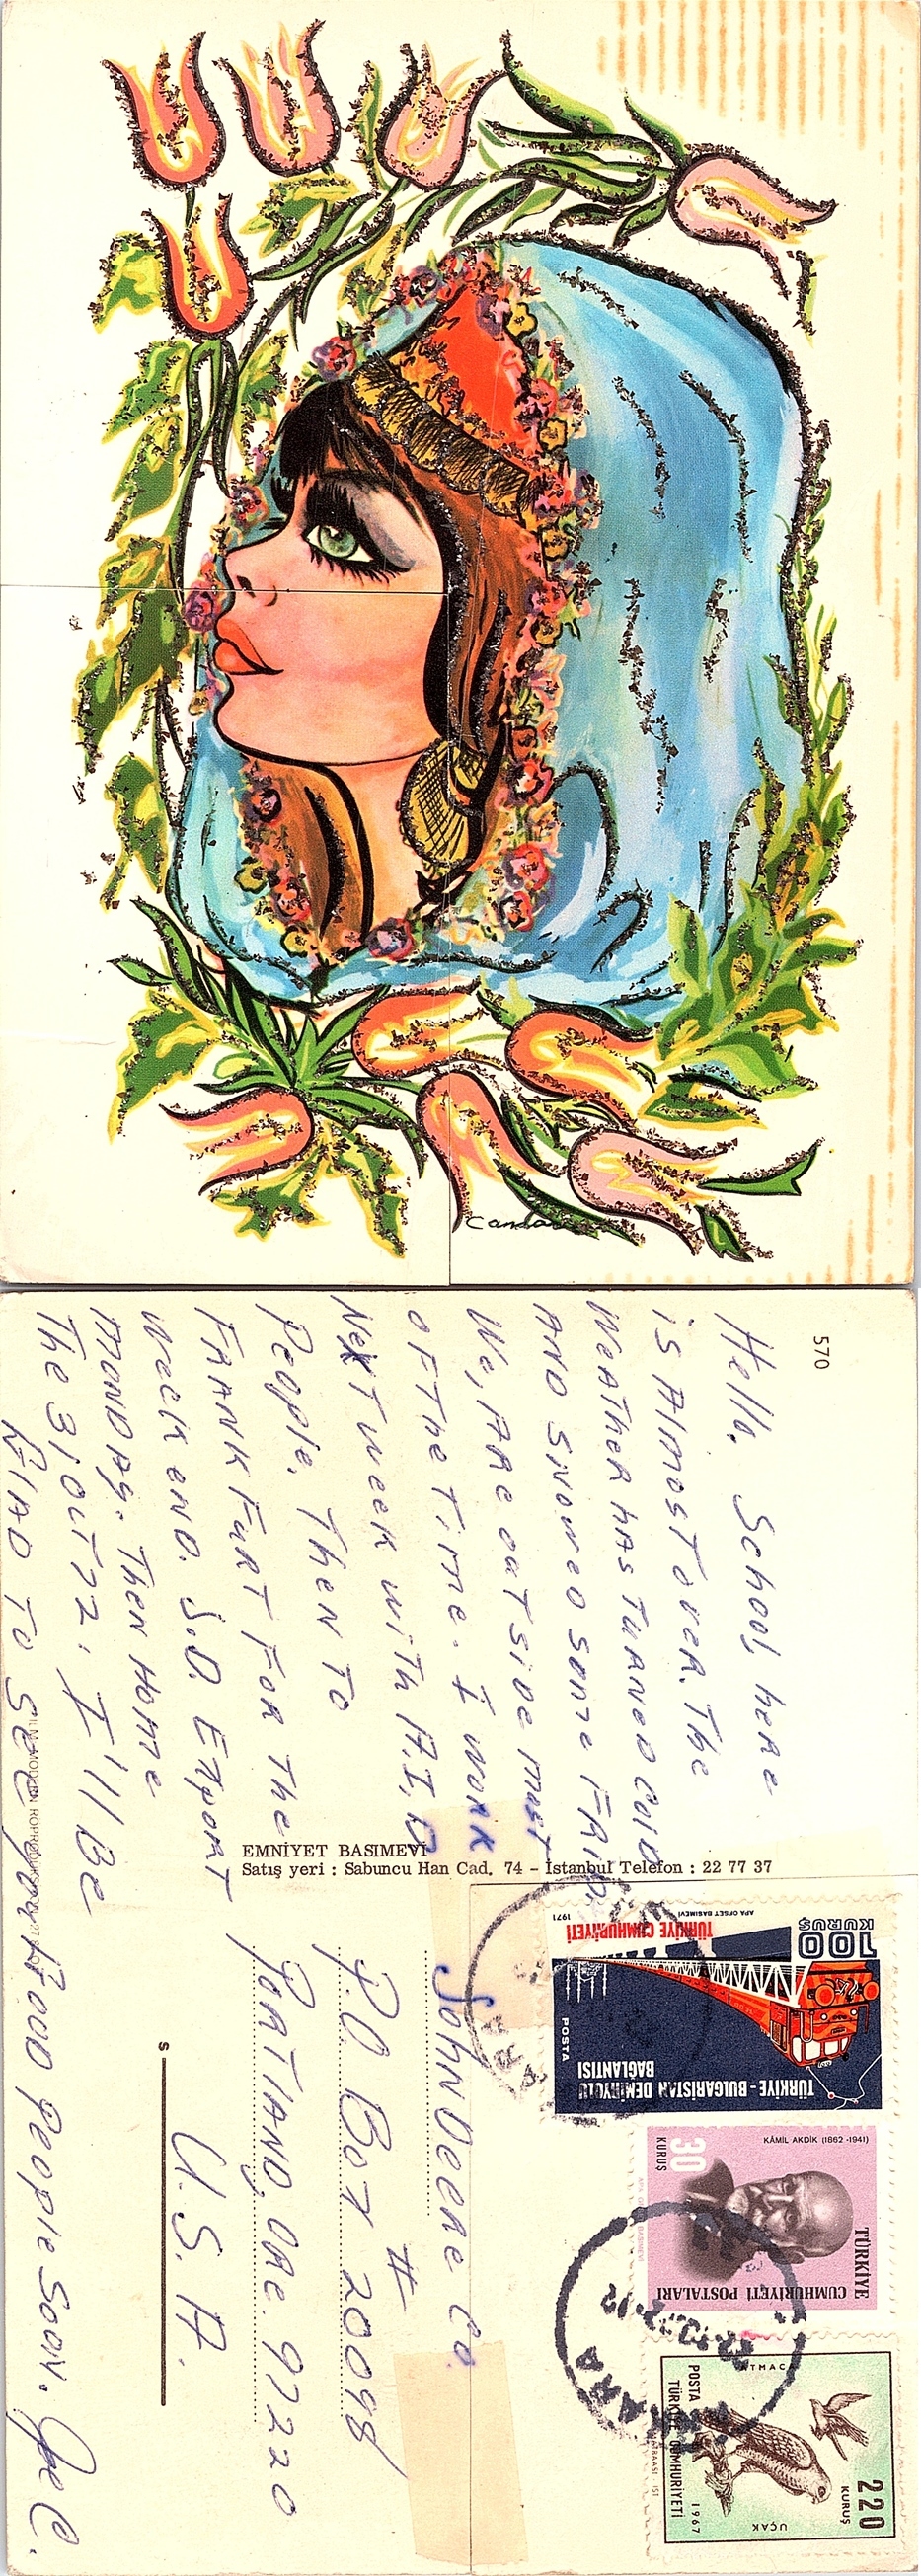 Candan
570
Hello. School, here
is Almost over. The
Weather has turned cold
AND SNOWED SOME FRID.
We, ARE outside most
OF The Time. I work
Next week with A.I.D
People. Then To
FRANKFURT FOR The
Week end. J.D. Export
MONDAY. Then Home
The 31 Oct 72. I'll Be
GLAD To See you Good People Soon. Joe C.
EMNİYET BASIMEVİ
Satış yeri : Sabuncu Han Cad. 74 - İstanbul Telefon : 22 77 37
John Deere Co.
P.O. Box # 20098
PORTLAND, ORE. 97220
U.S.A.
s
100
KURUŞ
TÜRKİYE CUMHURİYETİ
APA OFSET BASIMEVİ
1971
POSTA
TÜRKİYE - BULGARİSTAN DEMİRYOLU
BAĞLANTISI
30
KURUŞ
KÂMİL AKDİK (1862-1941)
TÜRKİYE
CUMHURİYETİ POSTALARI
ATMACA
POSTA
TÜRKİYE CUMHURİYETİ
1967
UÇAK
220
KURUŞ